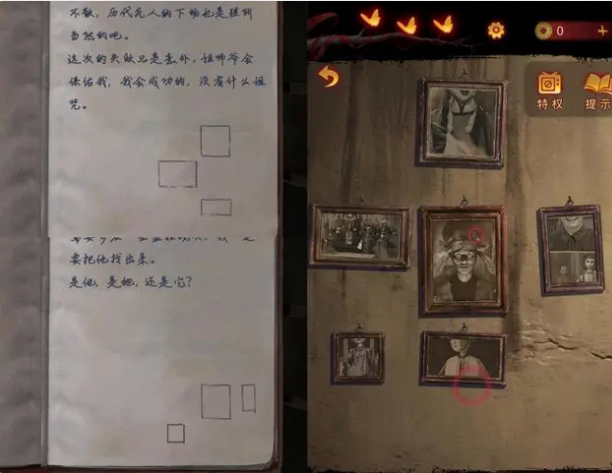 不敬。历代先人的下场也是理所
当然的吧。
这次的失败只是意外，祖师爷会
保佑我，我会成功的，没有什么诅
咒。
要把他找出来。
是他，是她，还是它？
0
特权
提示